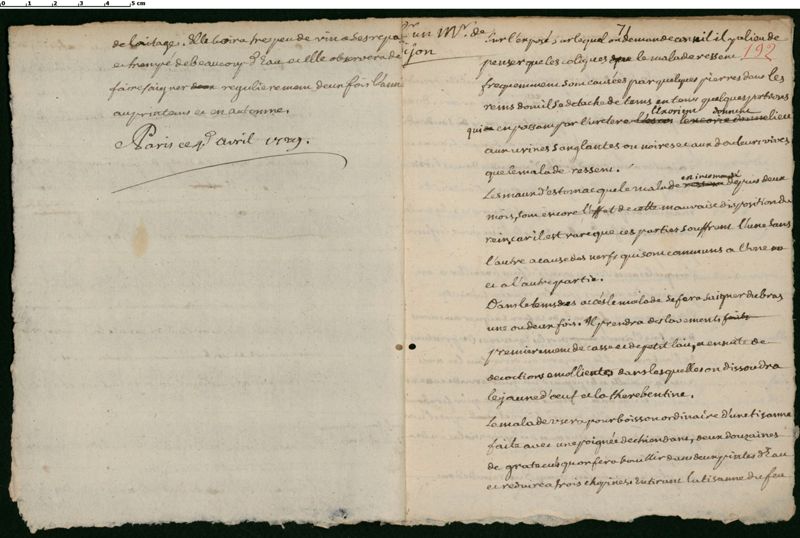 de laitage. Elle boira tres peu de vin a ses repas
et trempé de beaucoup d'Eau et elle observera de
se faire saigner regulierement deux fois l'anne
au printems et en automne.
a Paris ce 4e avril 1729.
un Mr. de
ijon
71
192
Sur l'exposé sur lequel on demande conseil il y a lieu de
penser que les coliques que le malade ressent
frequemment sont causées par quelques pierres dans les
reins dont il se detache de tems en tems quelques portions
l'exoriant donnent
qui en passant par l'uretere lieu
aux urines sanglantes ou noires et aux douleurs vives
que le malade ressent.
est incommodé
Les maux d'estomac que le malade depuis deux
mois, sont encore l'effet de cette mauvaise disposition du
rein, car il est rare que ces parties souffrent l'une sans
l'autre a cause des nerfs qui sont communs a l'une
et a l'autre partie.
Dans le tems des accés le malade se fera saigner du bras
une ou deux fois. Il prendra des lavements faits
premierement de casse et de petit lait, ensuite de
decoctions emollientes dans lesquelles on dissoudra
le jaune d'oeuf et la therebentine.
Le malade usera pour boisson ordinaire d'une tisanne
faite avec une poignée de chiendant, deux douzaines
de gratecus qu'on fera bouillir dans deux pintes d'Eau
et reduire a trois chopines. En tirant la tisanne du feu